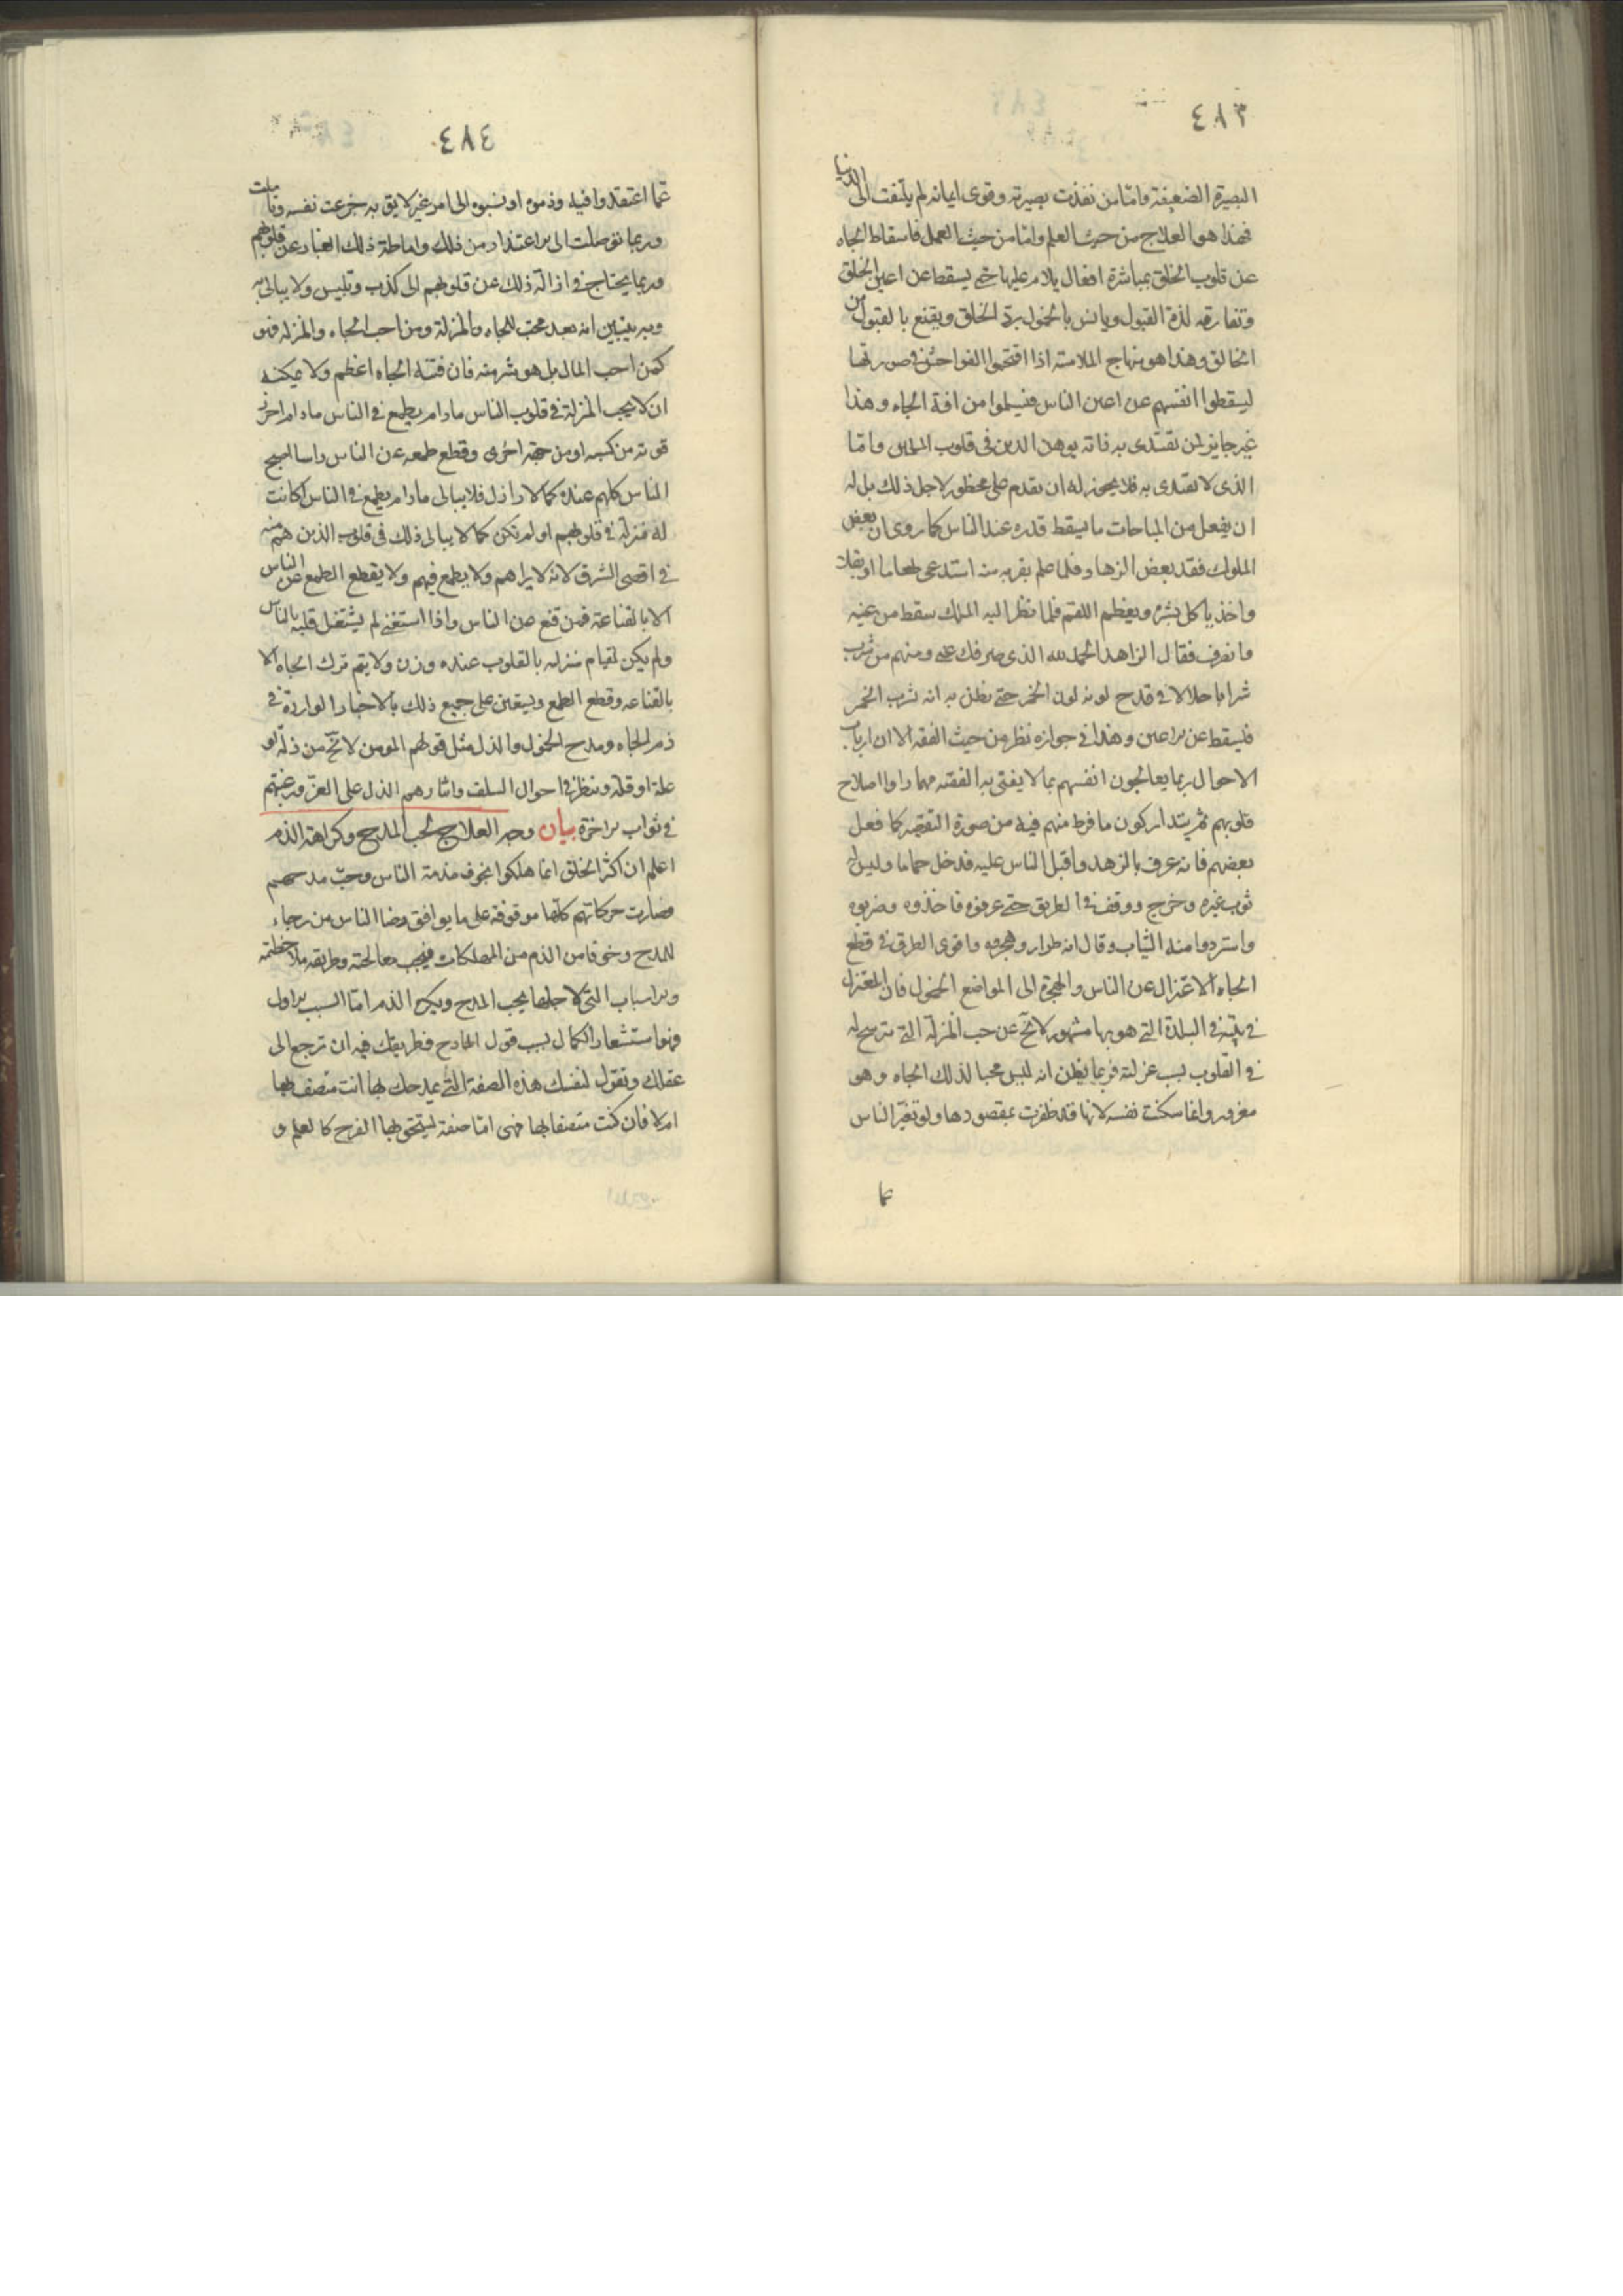 ٤٨٣
البصيرة الضعيفة وامّا من نفذت بصيرته وقوى ايمانه لم يلتفت الى الدنيا
فهذا هو العلاج من حيث العلم وامّا من حيث العمل فاسقاط الجاه
عن قلوب الخلق بمباشرة افعال يلام عليها حتى يسقط عن اعين الخلق
وتفارقه لذة القبول ويانس بالخمول برد الخلق ويقنع بالقبول من
الخالق وهذا هو منهاج الملامتية اذا اقتحموا الفواحش فى صورتها
ليسقطوا انفسهم عن اعين الناس فيسلموا من افة الجاه وهذا
غير جايز لمن يقتدى به فانه يوهن الدين فى قلوب المسلمين وامّا
الذى لا يقتدى به فلا يجوز له ان يقدم على محظور لاجل ذلك بل له
ان يفعل من المباحات ما يسقط قدره عند الناس كما روى ان بعض
الملوك فقد بعض الزهاد فلما علم بقربه منه استدعى طعاما او بقلا
واخذ ياكل بشره ويعظم اللقم فلما نظر اليه الملك سقط من عينه
وانصرف فقال الزاهد الحمد لله الذى صرفك عنى ومنهم من شرب
شرابا حلالا فى قدح لونه لون الخمر حتى يظن به انه شرب الخمر
فيسقط عن الاعين وهذا فى جوازه نظر من حيث الفقه الا ان ارباب
الاحوال ربما يعالجون انفسهم بما لا يفتى به الفقيه مهما راوا اصلاح
قلوبهم ثم يتداركون ما فرط منهم فيه من صورة التقصير كما فعل
بعضهم فانه عرف بالزهد واقبل الناس عليه فدخل حماما ولبس
ثوب غيره وخرج ووقف فى الطريق حتى عرفوه فاخذوه وضربوه
واستردوا منه الثياب وقال انه طرار وهجروه واقوى الطرق فى قطع
الجاه الاعتزال عن الناس والهجرة الى المواضع الخمول فان المعتزل
فى بيته فى البلدة التى هو بها مشهور لا يخ عن حب المنزلة التى ترسخ له
فى القلوب بسبب عزلته فربما يظن انه ليس محبا لذلك الجاه وهو
مغرور وانما سكنت نفسه لانها قد ظفرت بمقصودها ولو تغيّر الناس
عما
٤٨٤
عمّا اعتقدوا فيه وذموه او نسبوه الى امر غير لايق به جزعت نفسه وتالمت
وربما توصلت الى الاعتذار من ذلك واماطة ذلك الغبار عن قلوبهم
وربما يحتاج فى ازالة ذلك عن قلوبهم الى كذب وتلبيس ولا يبالى به
وبه يتبين انه بعد محب للجاه والمنزلة ومن احب الجاه والمنزلة فهو
كمن احب المال بل هو شر منه فان فتنة الجاه اعظم ولا يمكنه
ان لا يحب المنزلة فى قلوب الناس ما دام يطمع فى الناس ما دام احرز
قوته من كسبه او من جهة اخرى وقطع طمعه عن الناس راسا اصبح
الناس كلهم عنده كالاراذل فلا يبالى ما دام يطمع فى الناس اكانت
له منزلة فى قلوبهم او لم تكن كما لا يبالى ذلك فى قلوب الذين هم منه
فى اقصى الشرق لانه لا يراهم ولا يطمع فيهم ولا يقطع الطمع عن الناس
الا بالقناعة فمن قنع عن الناس واذا استغنى لم يشتغل قلبه بالناس
ولم يكن لقيام منزله بالقلوب عنده وزن ولا يتم ترك الجاه الا
بالقناعه وقطع الطمع ويستعين على جميع ذلك بالاخبار الواردة فى
ذم الجاه ومدح الخمول والذل مثل قولهم المومن لا يخ من ذلة او
علة او قلة وينظر فى احوال السلف وايثارهم الذل على العز ورغبتهم
فى ثواب الاخرة بيان وجه العلاج لحب المدح وكراهة الذم
اعلم ان اكثر الخلق انما هلكوا بخوف مذمة الناس وحبّ مدحهم
فصارت حركاتهم كلها موقوفة على ما يوافق رضا الناس من رجاء
للمدح وخوفا من الذم من المهلكات فيجب معالجته وطريقه ملاحظة
الاسباب التى لاجلها يحب المدح ويكره الذم امّا السبب الاول
فهو استشعار الكمال بسبب قول المادح فطريقك فيه ان ترجع الى
عقلك وتقول لنفسك هذه الصفة التى يمدحك بها انت متصف بها
ام لا فان كنت متصفا بها فهى امّا صفة يستحق بها الفرح كالعلم و